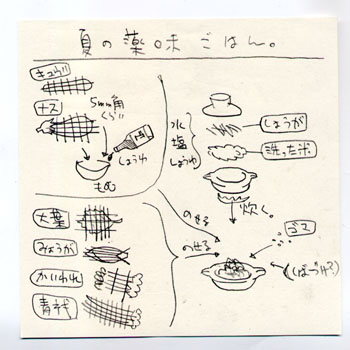 夏の薬味ごはん。
キュウリ
ナス
5mm角
くらい
しょうゆ
もむ
水
塩
しょうゆ
しょうが
洗った米
炊く。
大葉
みょうが
かいわれ
青ネギ
のせる
のせる
ゴマ